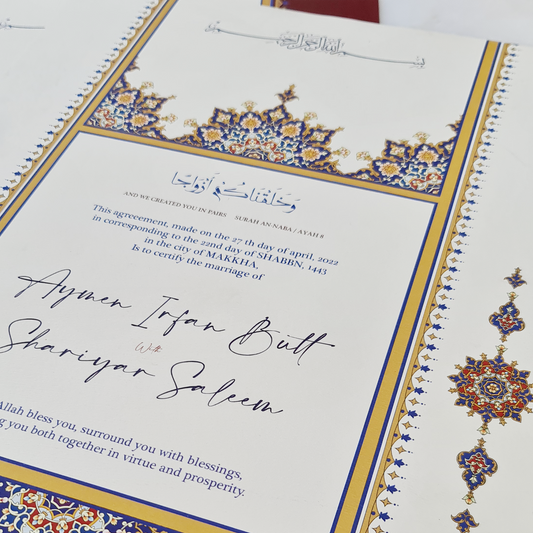 بسم الله الرحمن الرحيم
وَخَلَقْنَاكُمْ أَزْوَاجًا
AND WE CREATED YOU IN PAIRS SURAH AN-NABA / AYAH 8
This agreecement, made on the 27 th day of april, 2022
in corresponding to the 22nd day of SHABBN, 1443
in the city of MAKKHA,
Is to certify the marriage of
Aymen Irfan Butt
With
Shariyar Saleem
Allah bless you, surround you with blessings,
you both together in virtue and prosperity.